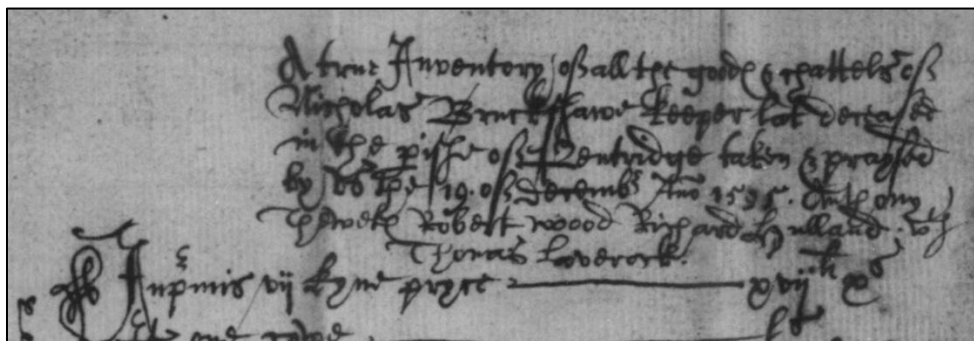 A true Inventory of all the goods & chattels of
Nicholas Bruckshawe keeper lat deceased
in the pishe of Pentridge taken & praysed
by us the 19 of Decembr Ano 1595. Anthony
Robert wood Richard Hulland
Thomas Laverock.
Inpmis vij kyne pryce xvij li x s
one